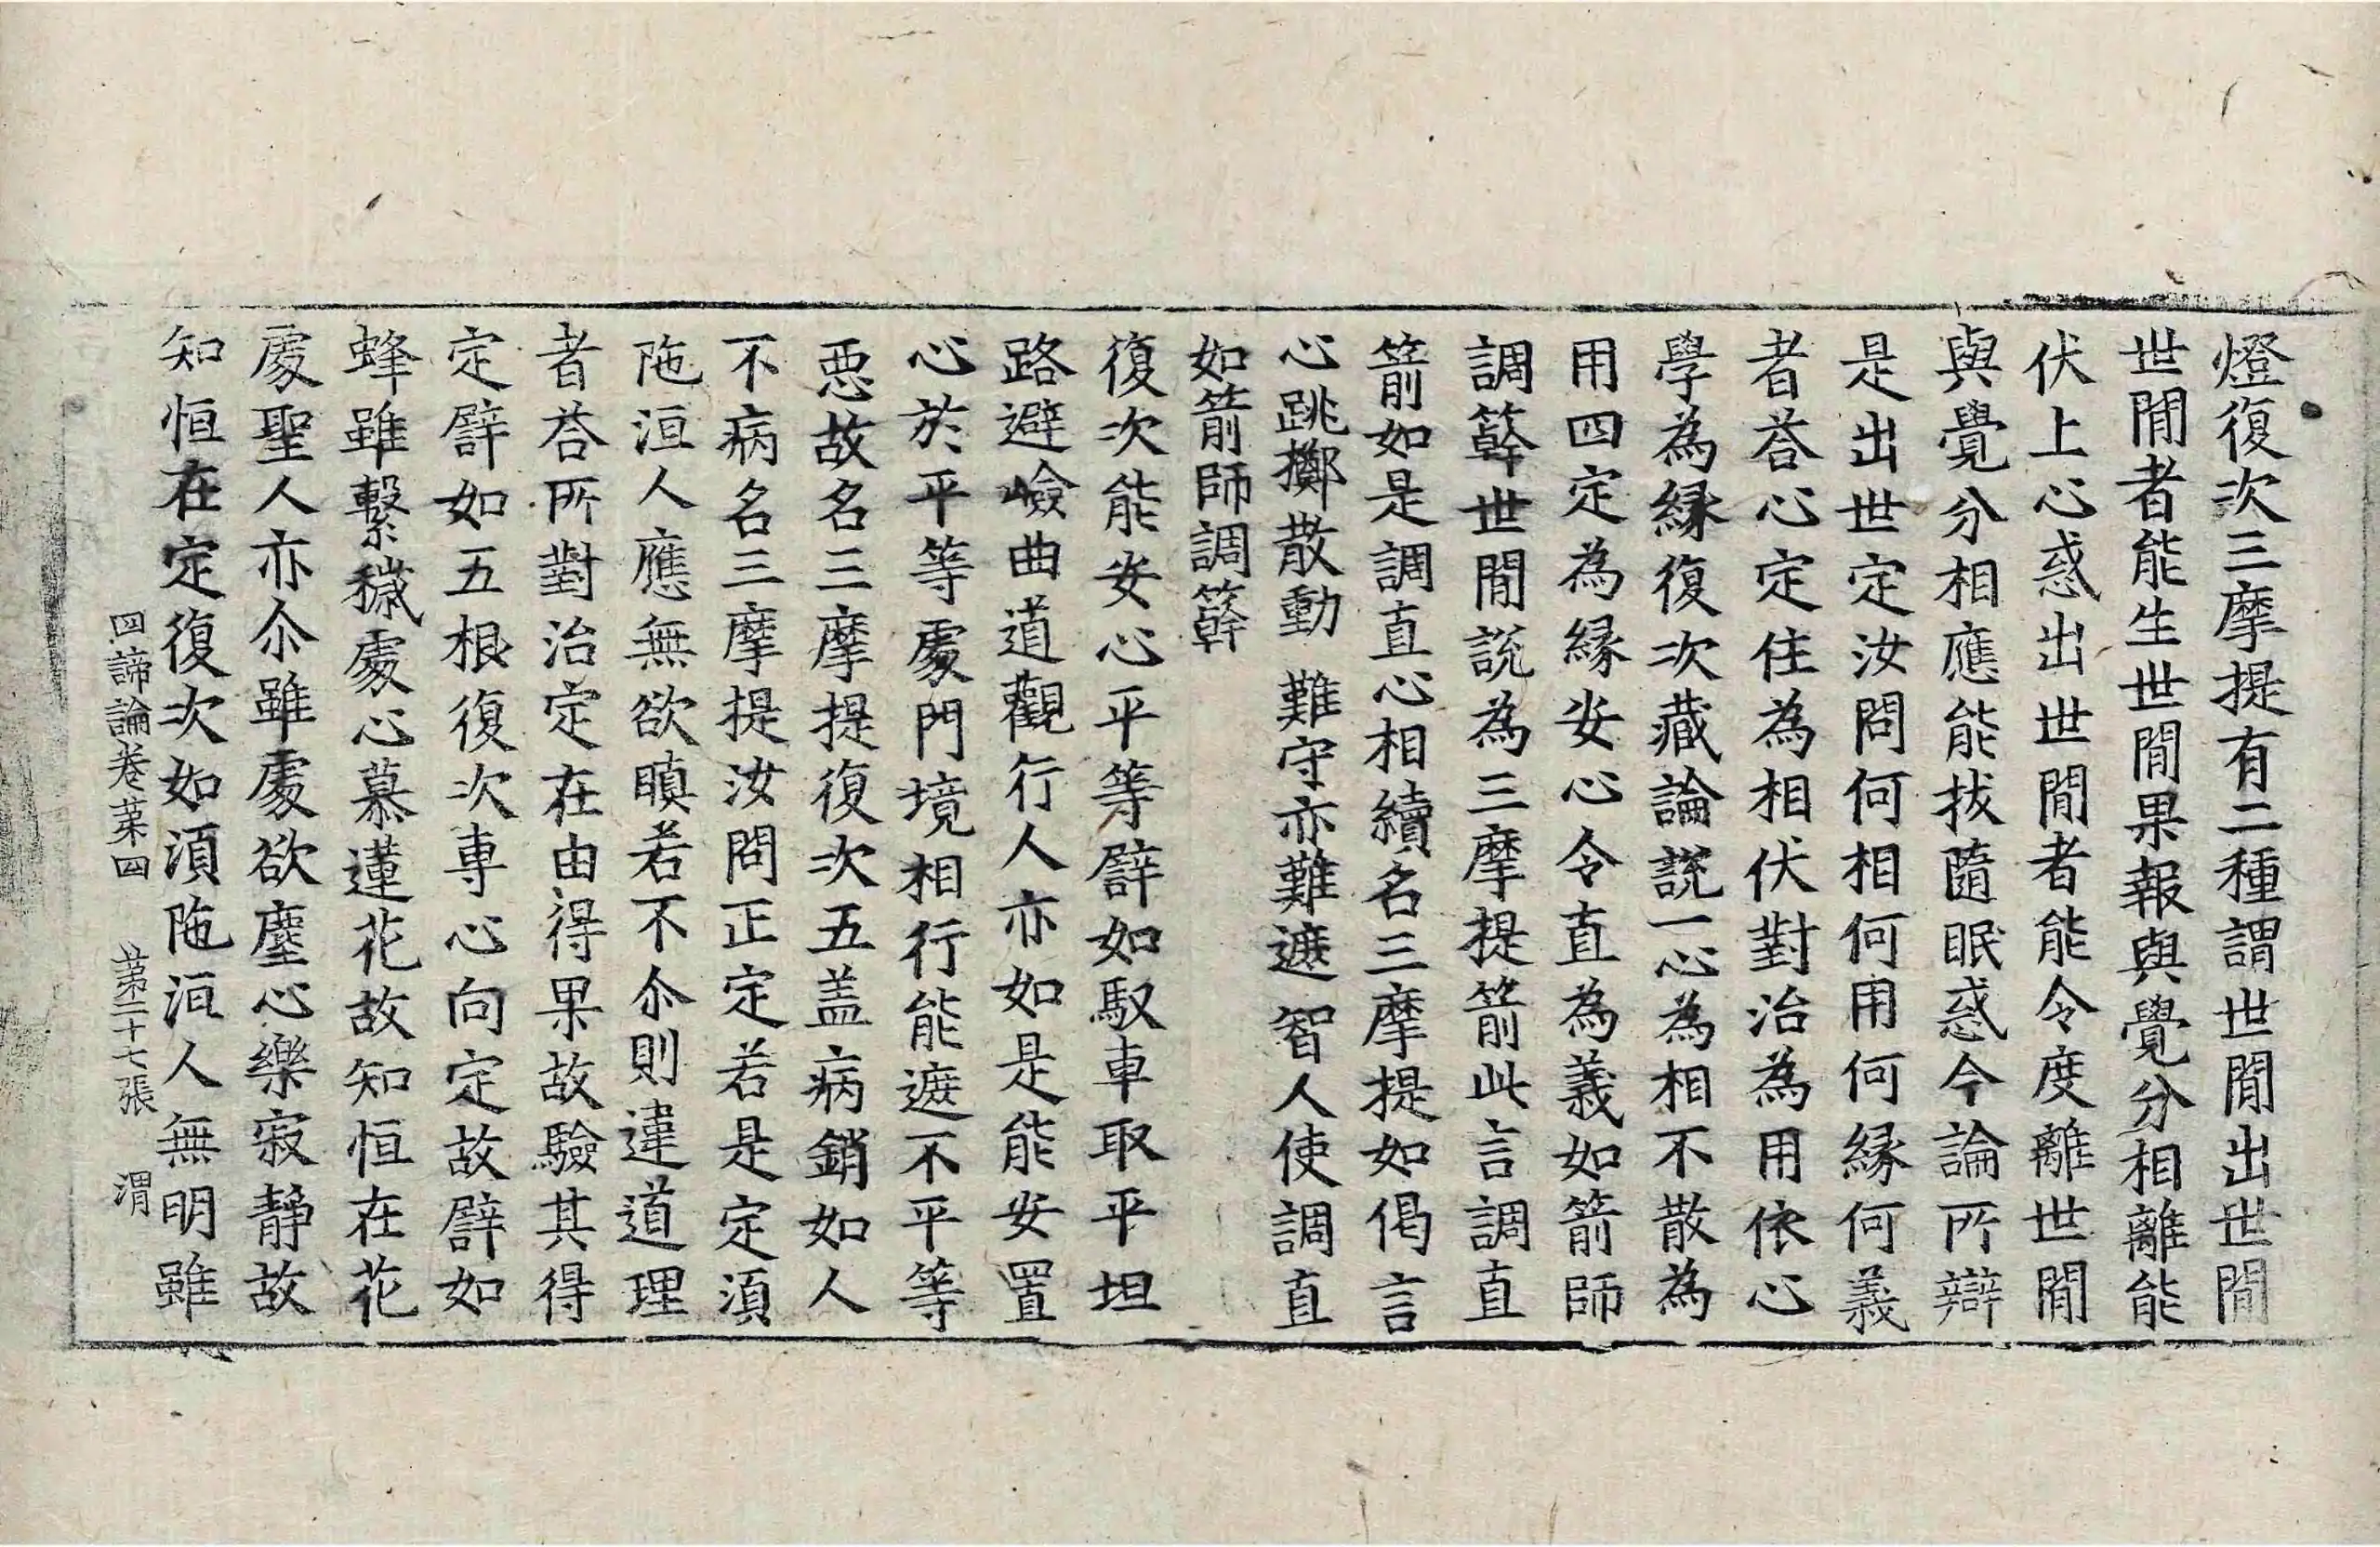 燈復次三摩提有二種謂世閒出世閒
世閒者能生世閒果報與覺分相離能
伏上心惑出世閒者能令度離世閒
與覺分相應能拔隨眠惑今論所辯
是出世定汝問何相何用何緣何義
者荅心定住為相伏對治為用依心
學為緣復次藏論說一心為相不散為
用四定為緣安心令直為義如箭師
調簳世閒說為三摩提箭此言調直
箭如是調直心相續名三摩提如偈言
心跳擲散動　難守亦難遮　智人使調直
如箭師調簳
復次能安心平等譬如馭車取平坦
路避嶮曲道觀行人亦如是能安置
心於平等處門境相行能遮不平等
惡故名三摩提復次五盖病銷如人
不病名三摩提汝問正定若是定湏
陁洹人應無欲瞋若不尒則違道理
者荅所對治定在由得果故驗其得
定譬如五根復次專心向定故譬如
蜂雖繫穢處心慕蓮花故知恒在花
處聖人亦尒雖處欲塵心樂寂静故
知恒在定復次如湏陁洹人無明雖
四諦論卷苐四　苐二十七張　渭